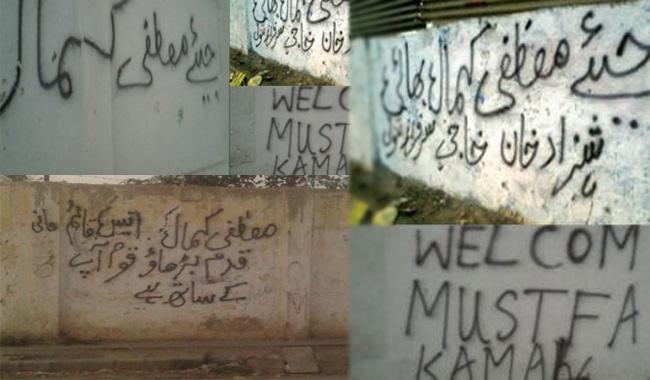 جیئے مصطفی کمال
کمال بھائی
خان
WELC
MUSTF
KAMA
جیئے مصطفی کمال بھائی
شہزاد خان
مصطفی کمال انیس قائم خانی
قدم بڑھاؤ قوم آپ
کے ساتھ ہے
WELCOM
MUSTFA
KAMAL